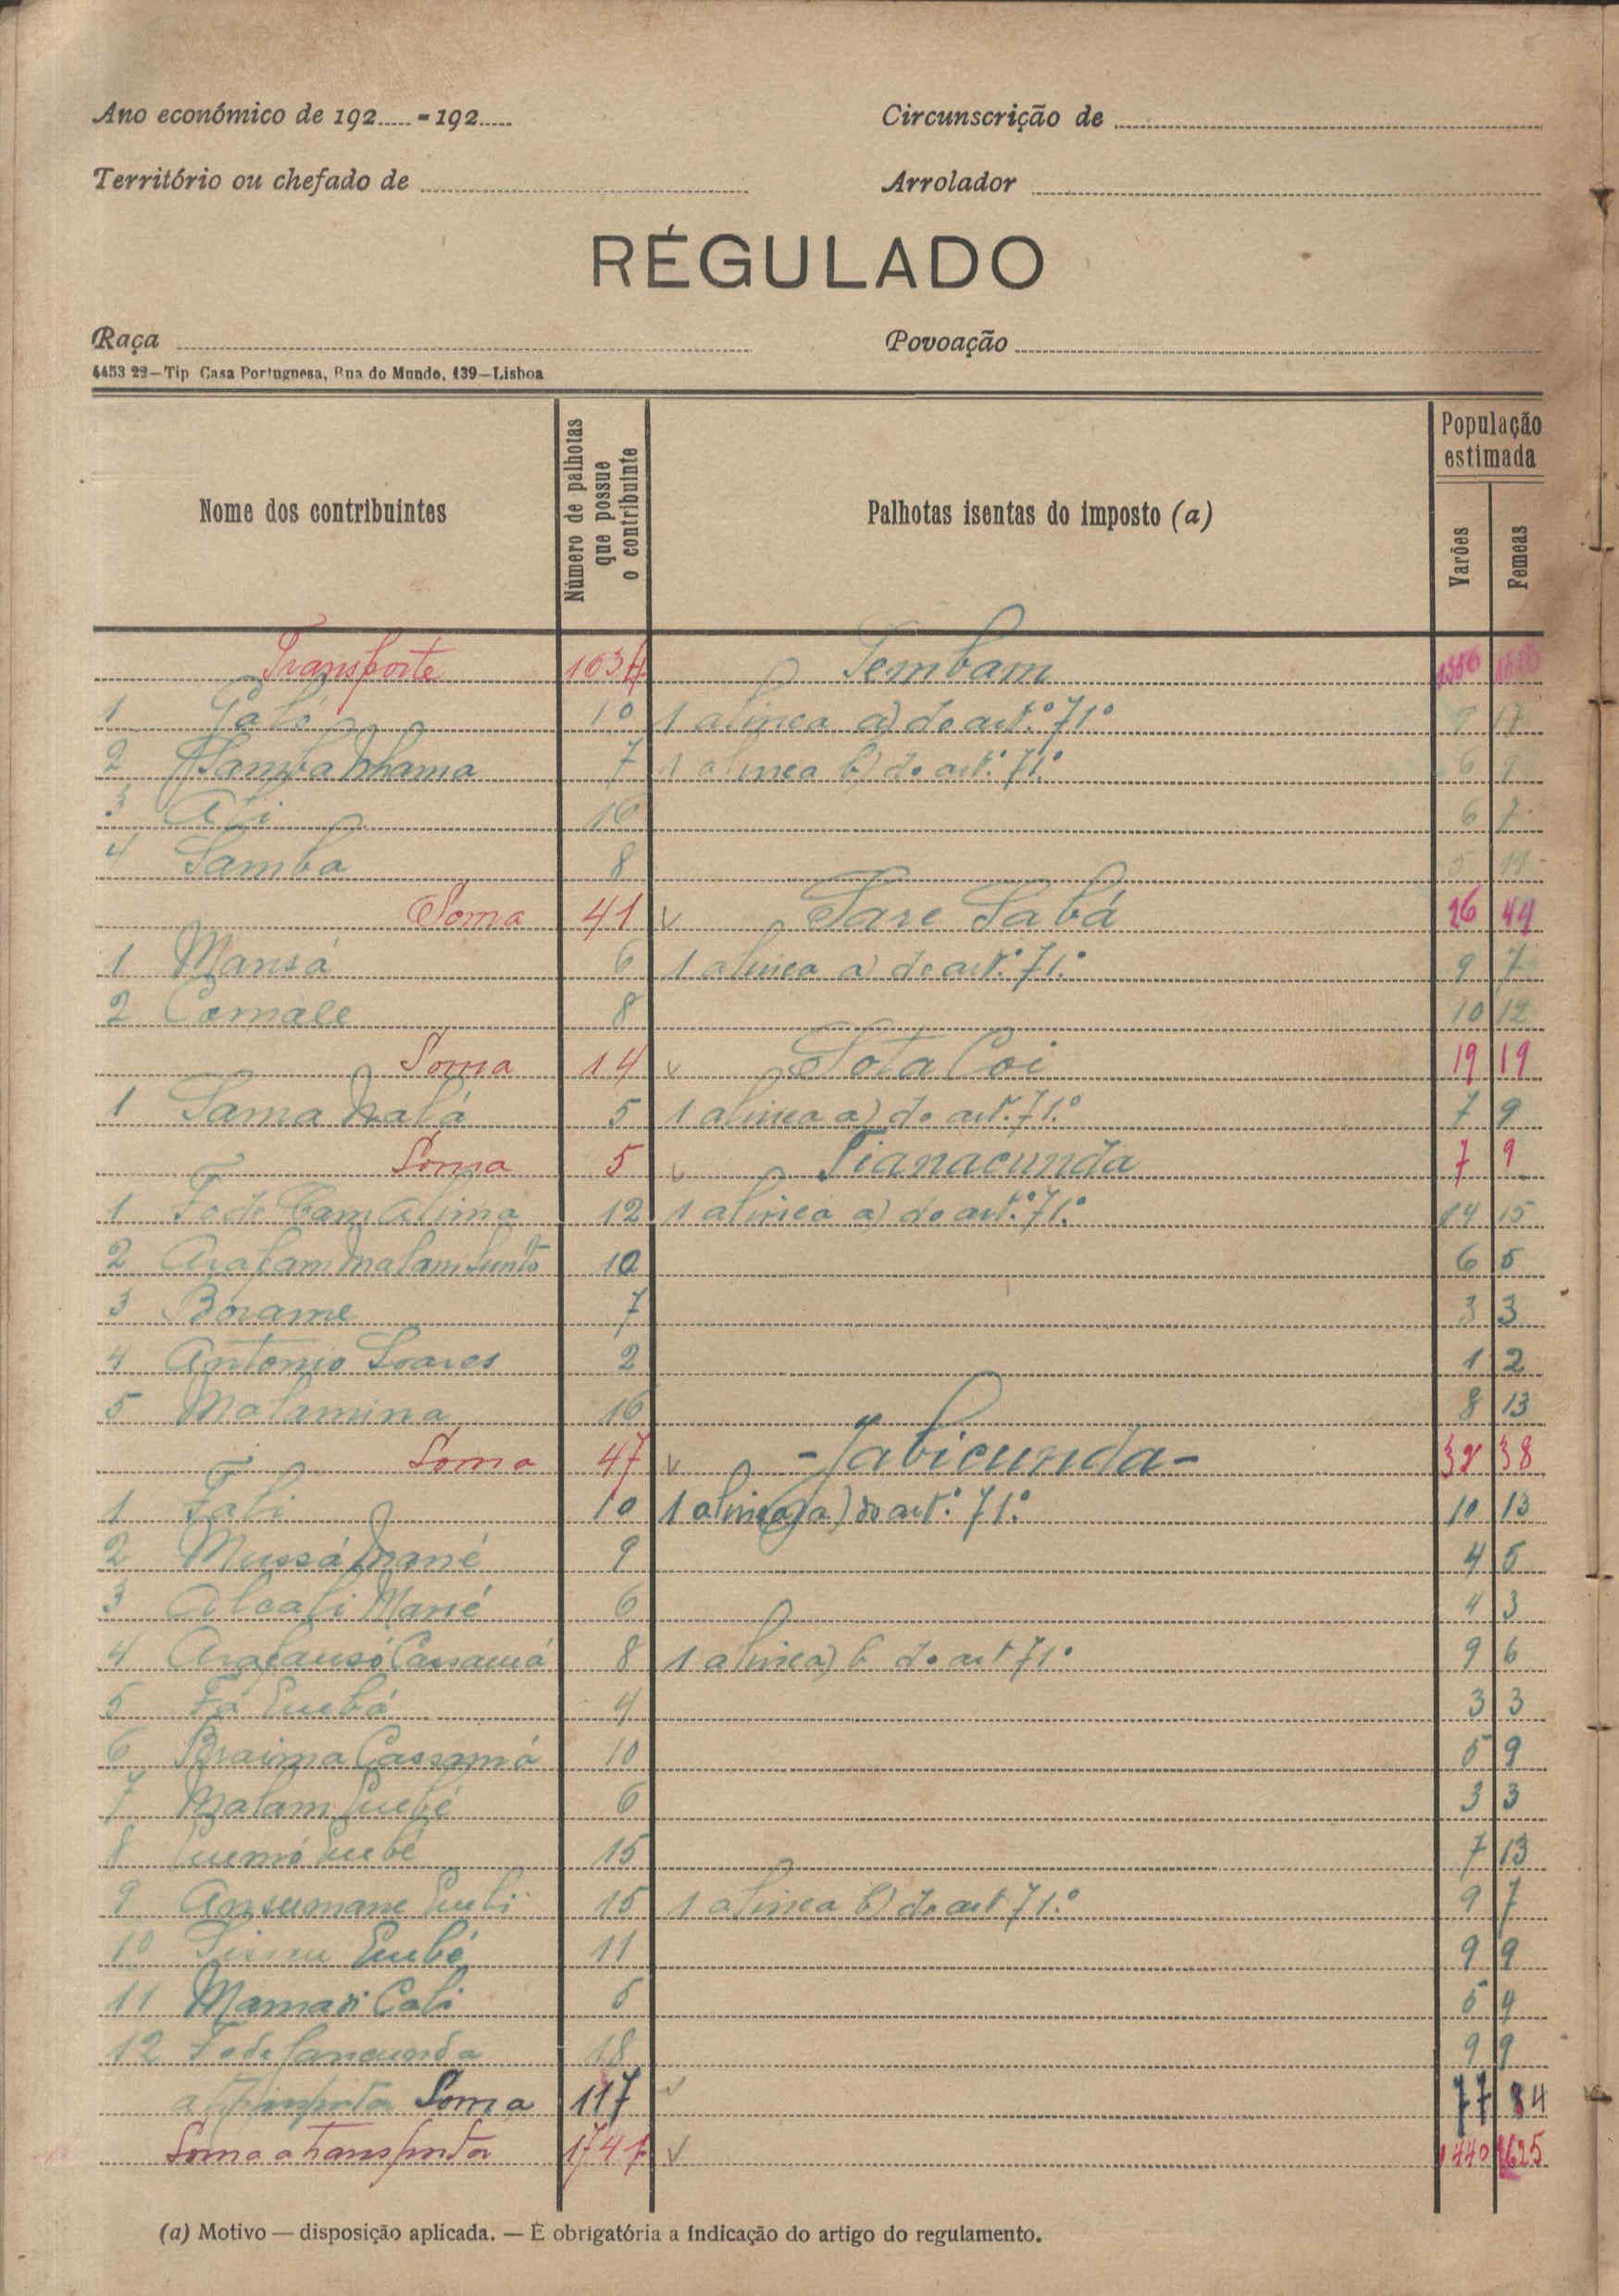 Ano económico de 192..... - 192.....
Circunscrição de
Território ou chefado de
Arrolador
RÉGULADO
Raça
Povoação
4453 22—Tip Casa Portuguesa, Rua do Mundo, 139—Lisboa
Nome dos contribuintes
Número de palhotas que possue o contribuinte
Palhotas isentas do imposto (a)
População estimada
Varões
Femeas
Transporte Sembam 1356
1 10 1 alinea a) do art.º 71º 9 17
2 Samba 7 1 alinea b) do art.º 71º 6 9
3 Ali 16 6 7
4 Samba 8 5 11
Soma 41 v Sare Sabá 26 44
1 Mansá 6 1 alinea a) do art.º 71.º 9 7
2 Comale 8 10 12
Soma 14 v Sota Coi 19 19
1 Sama 5 1 alinea a) do art. 71.º 7 9
Soma 5 v Tianacunda 7 9
1 Fode Cam Alima 12 1 alinea a) do art.º 71º 14 15
2 10 6 5
3 Borame 7 3 3
4 Antonio Soares 2 1 2
5 Malamina 16 8 13
Soma 47 v - Jabicunda - 32 38
1 Fali 10 1 alinea a) do art.º 71º 10 13
2 Mussá Mané 9 4 5
3 Alcali Mané 6 4 3
4 8 1 alinea) b do art 71º 9 6
5 Fá 4 3 3
6 Braima Cassamá 10 5 9
7 Malam 6 3 3
8 15 7 13
9 Ansumane 15 1 alinea b) do art 71.º 9 7
10 11 9 9
11 Mamadi Cali 5 5 4
12 Fode 18 9 9
Soma 117 v 77 84
Soma a transportar 1741 v 1440 1625
(a) Motivo — disposição aplicada. — É obrigatória a indicação do artigo do regulamento.